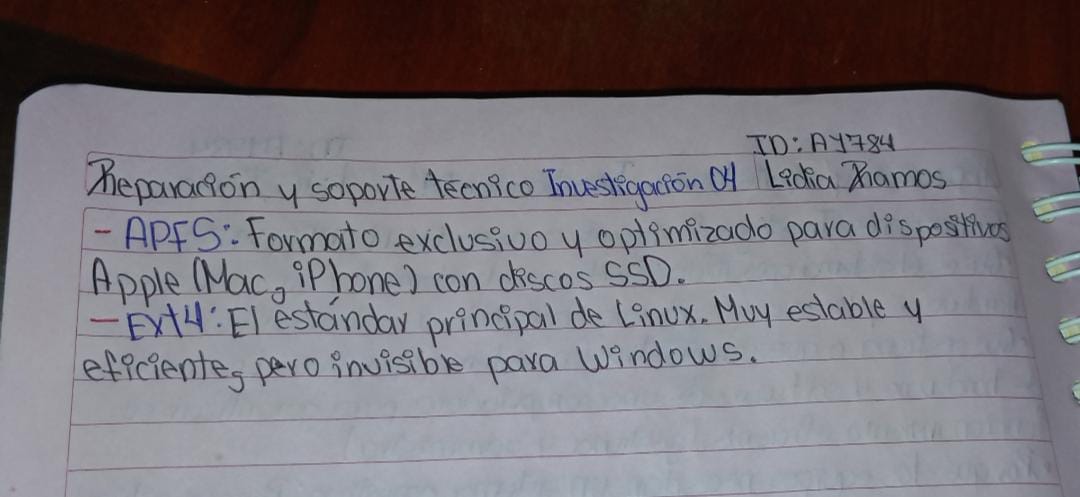 ID: AY784
Reparación y soporte técnico Investigación 04 Lidia Ramos
- APFS: Formato exclusivo y optimizado para dispositivos
Apple (Mac, iPhone) con discos SSD.
- Ext4: El estándar principal de Linux. Muy estable y
eficiente, pero invisible para Windows.